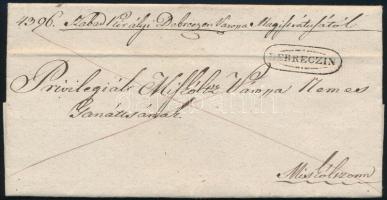 4396. Szabad Királyi Debreczen Várossa Magistrátusától
DEBRECZIN
Privilegiált Miskoltz Várossa Nemes
Tanáttsának
Miskóltzonn